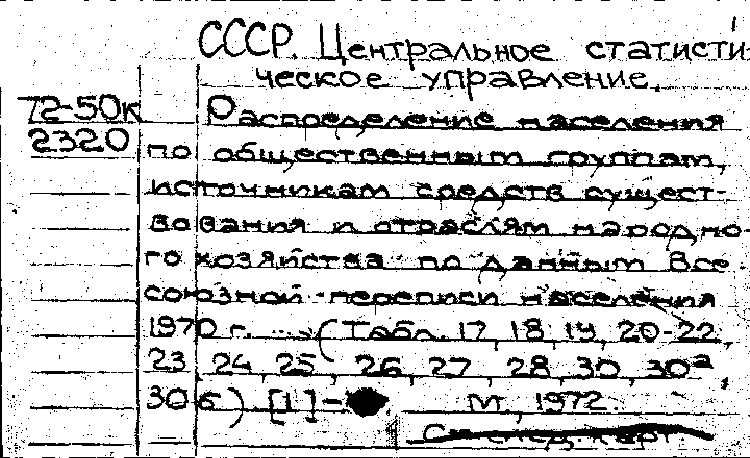 СССР. Центральное статисти-
ческое управление.
72-50к Распределение населения
2320 по общественным группам,
источникам средств сущест-
вования и отраслям народно-
го хозяйства по данным Все-
союзной переписи населения
1970 г. (Табл. 17, 18, 19, 20-22,
23, 24, 25, 26, 27, 28, 30, 30а,
30б) [1]-
М., 1972.
См. след. карт.